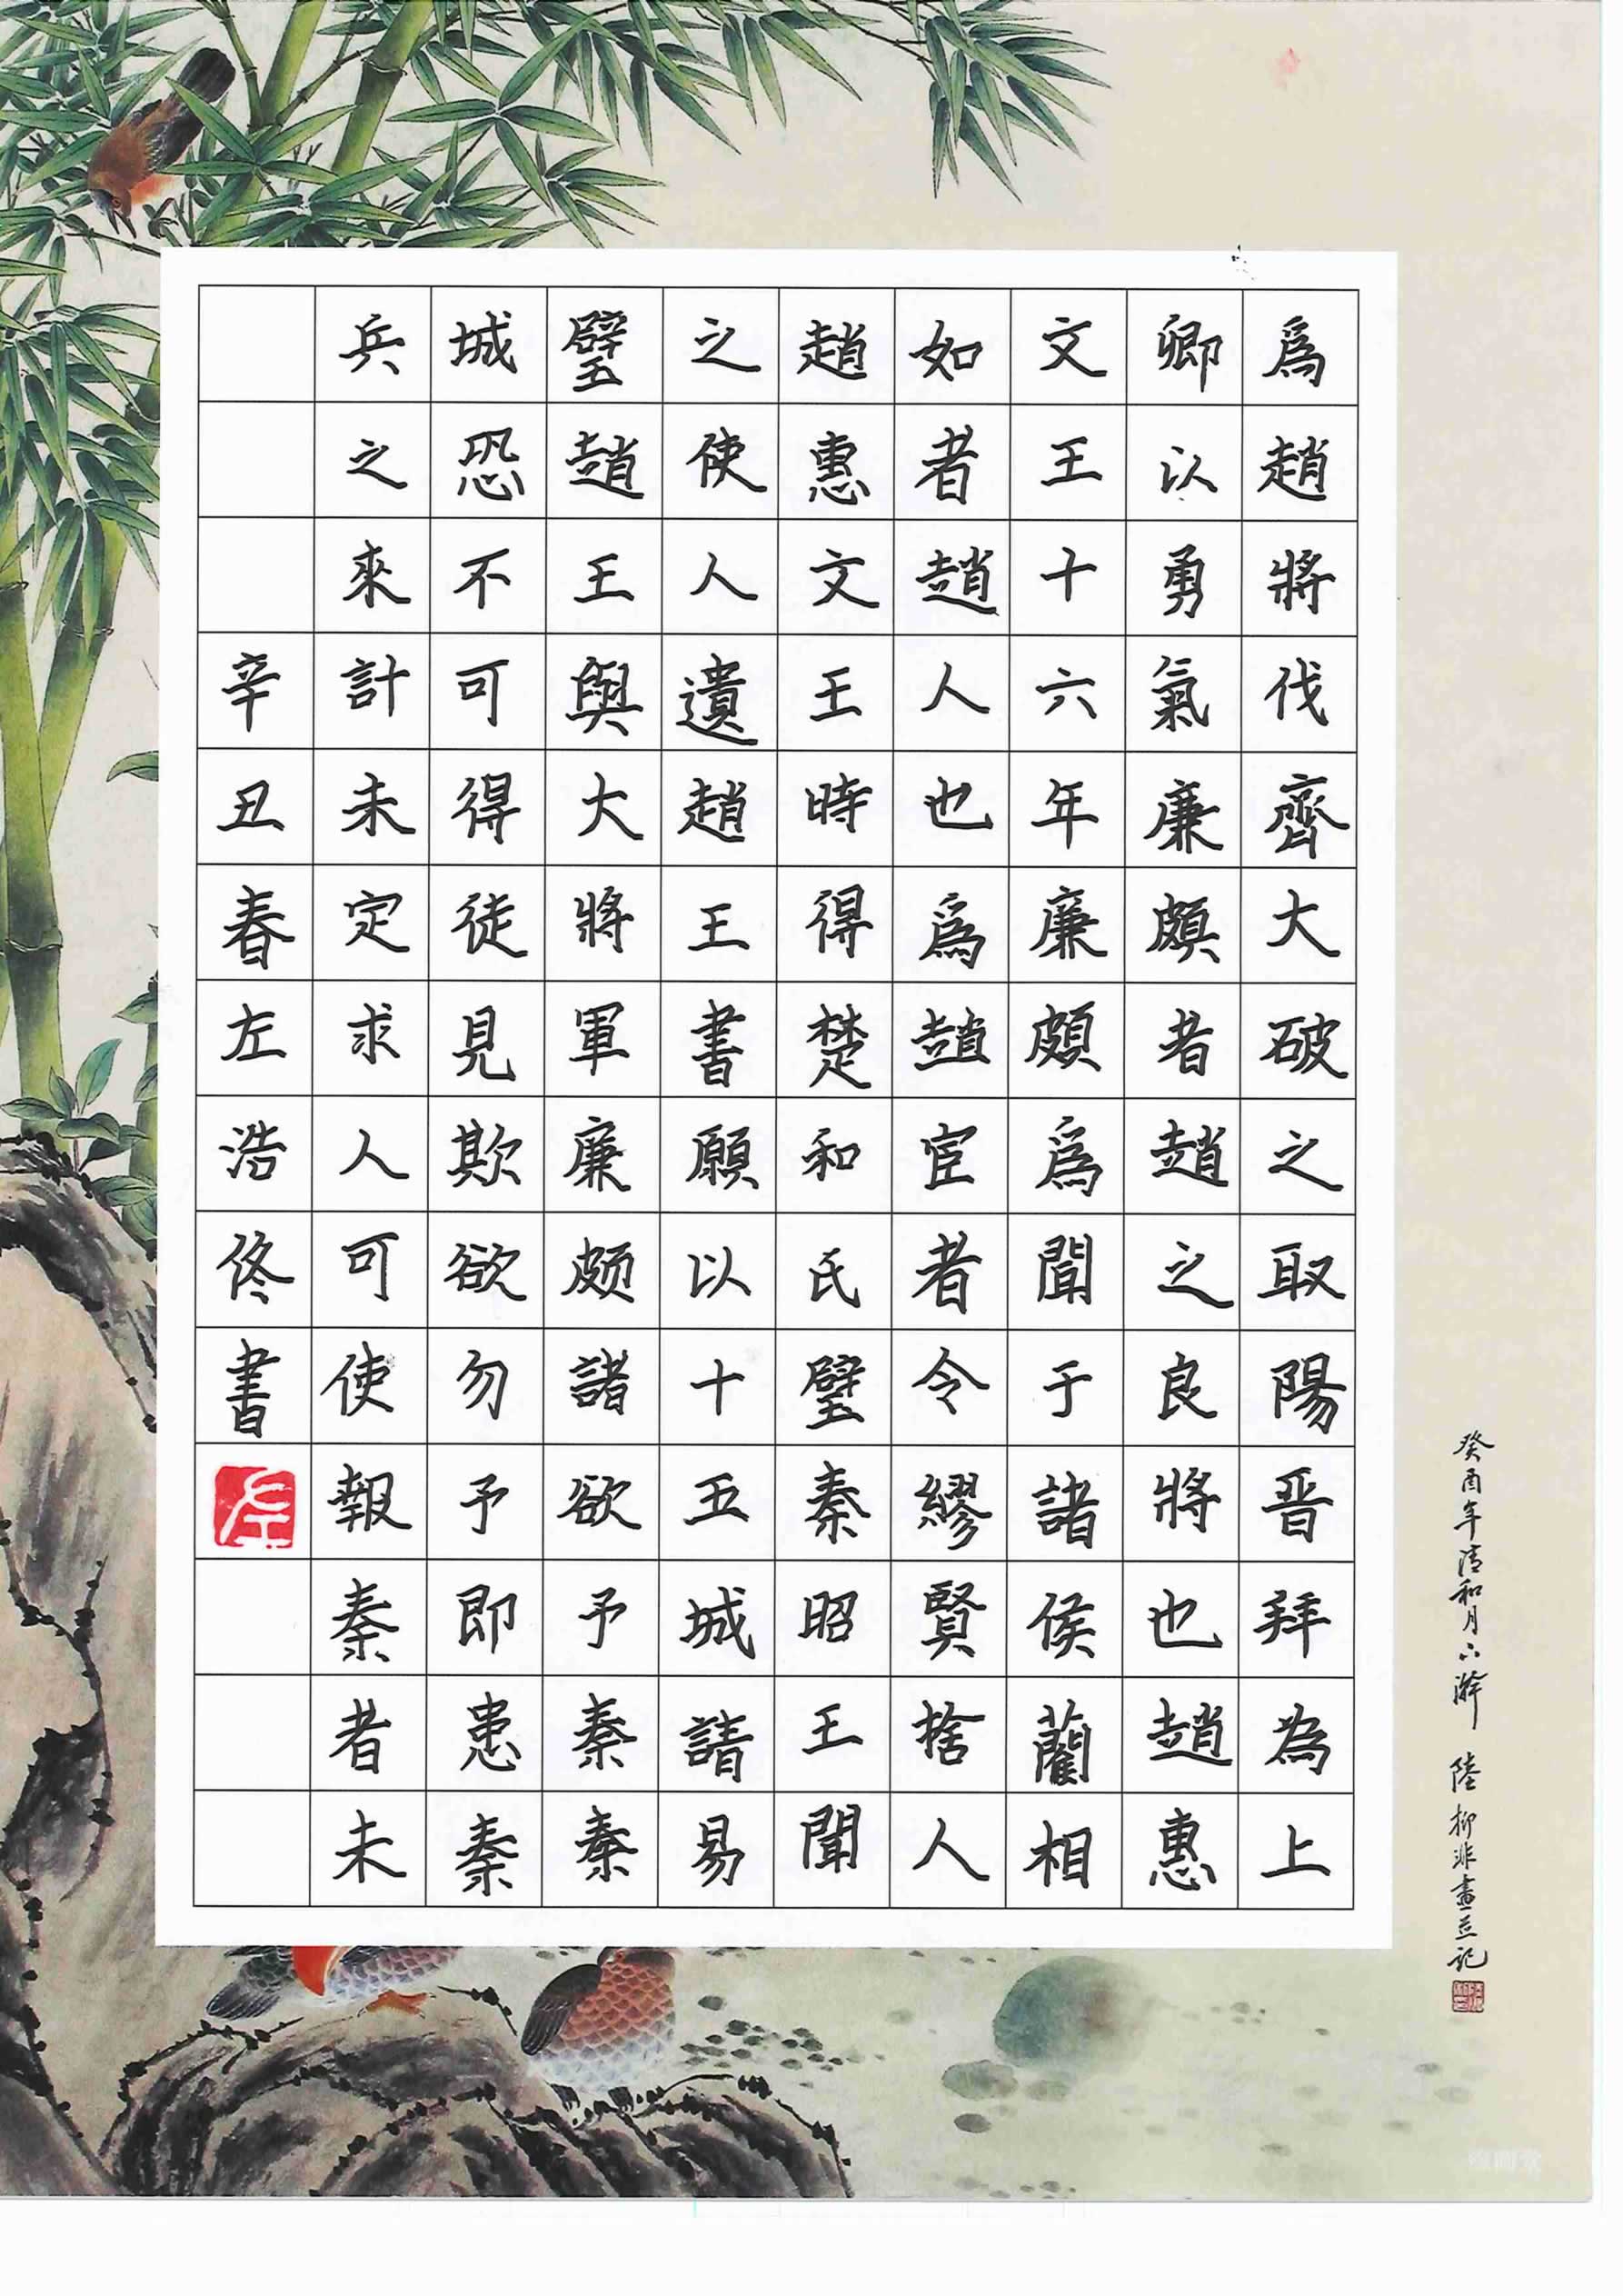 為趙將伐齊大破之取陽晋拜為上
卿以勇氣廉頗者趙之良將也趙惠
文王十六年廉頗為聞于諸侯藺相
如者趙人也為趙宦者令繆賢捨人
趙惠文王時得楚和氏璧秦昭王聞
之使人遺趙王書願以十五城請易
璧趙王與大將軍廉頗諸欲予秦秦
城恐不可得徒見欺欲勿予即患秦
兵之來計未定求人可使報秦者未
辛丑春左浩佟書
左
癸酉年清和月下澣 陸抑非畫並記